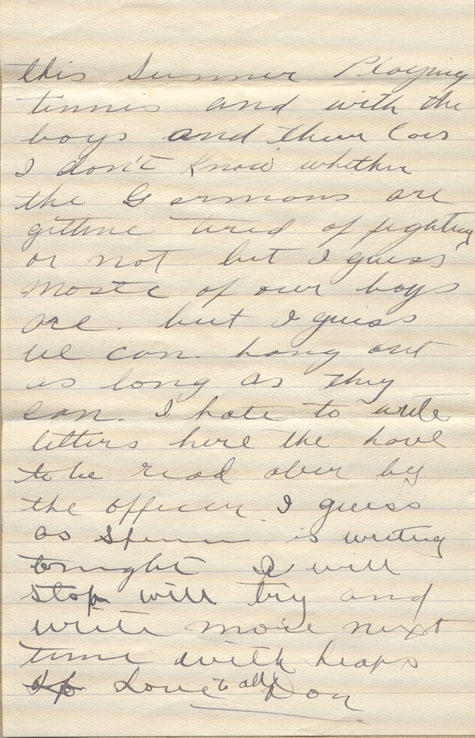 this Summer Playing
tennis and with the
boys and their Cars
I don't Know whether
the Germans are
getting tired of fighting
or not but I guess
most of our boys
are. but I guess
we can. hang out
as long as they
can. I hate to write
letters here the have
to be read over by
the officer I guess
as is writing
tonight I will
stop will try and
write more next
time with heaps
Love to all Don